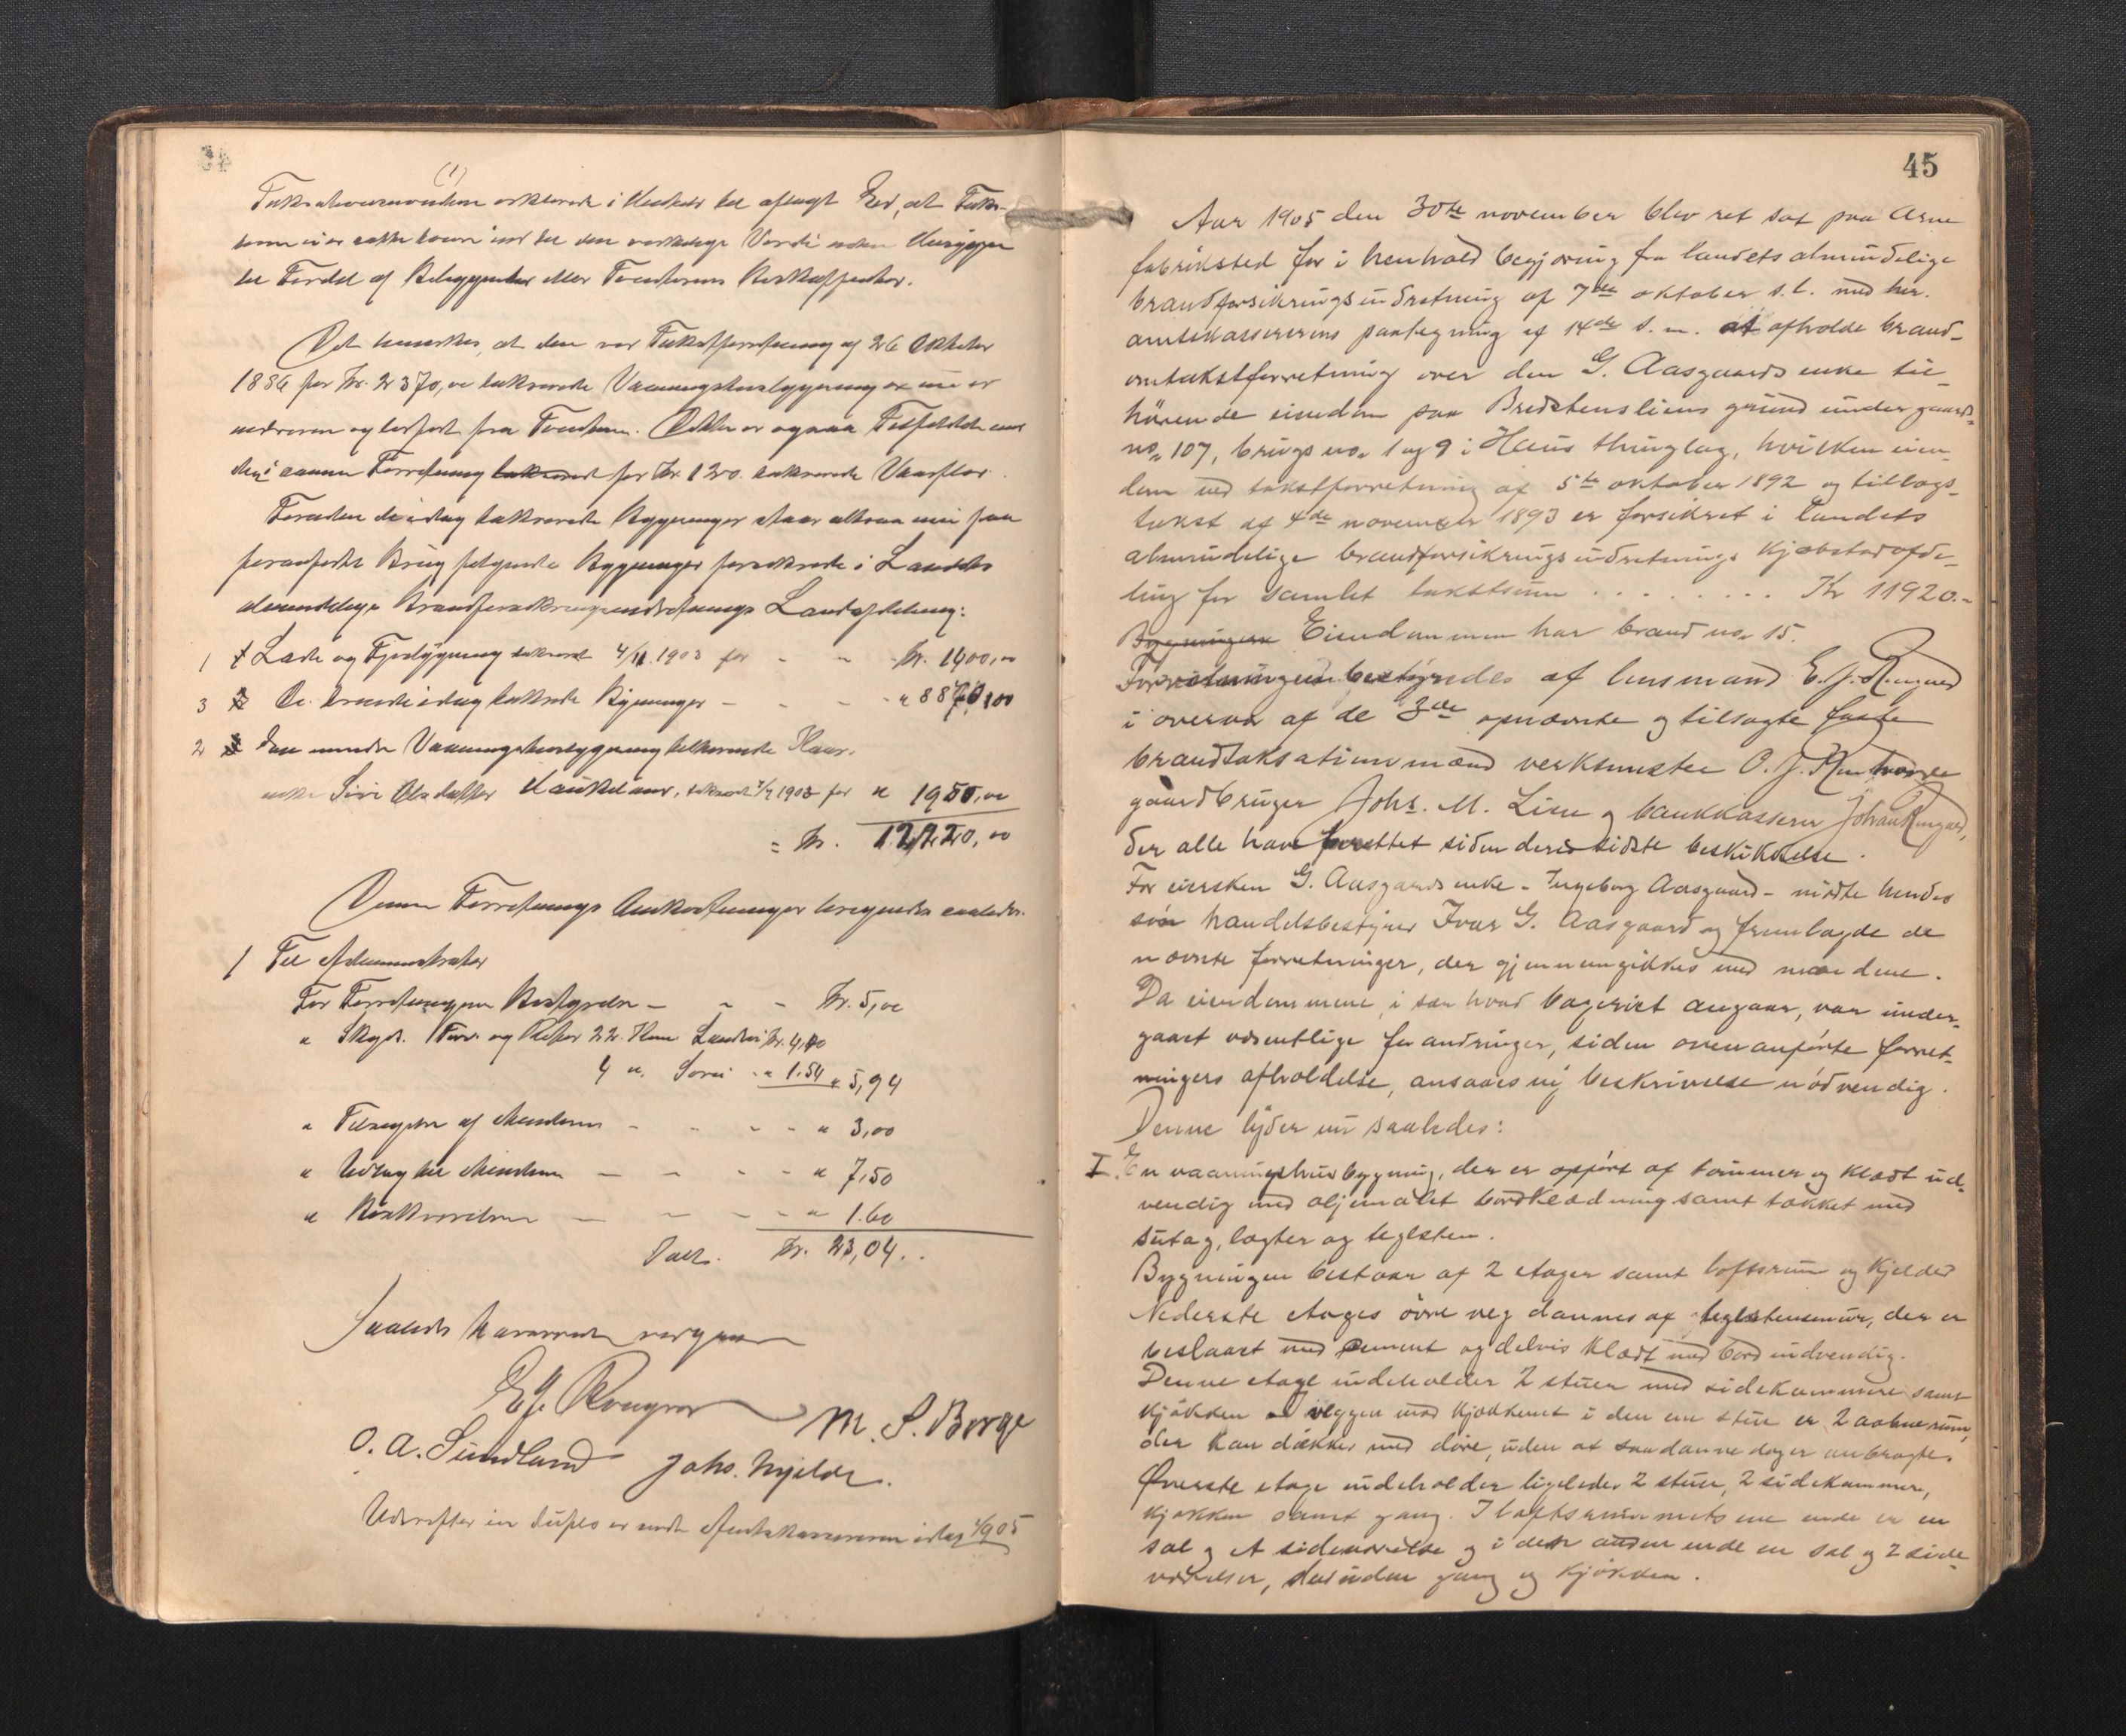 Taksationsmændene erklærede i Henhold til aflagt Ed, at Taks-
terne ei er satte høiere end til den virkelige Værdi uden Hensyn
til Fordel af Beliggenhed eller Tomtens Beskaffenhed.
Det bemerkes, at den ved Takstforretning af 26 Oktober
1886 for Kr. 2370,00 takserede Vaaningshusbygning nu er
nedreven og bortført fra Tomten. Dette er ogsaa Tilfældet med
den i samme Forretning takseret for Kr. 120 takserede
Foruden de idag takserede Bygninger staar altsaa nu paa
foranførte Brug følgende Bygninger forsikrede i Landets
almindelige Brandforsikringsindretnings Landafdeling:
1 Lade og Fjøsbygning takseret 4/11 1903 for - - Kr. 1400,00
3 De idag takserede Bygninger - - - " 8870,00
2 Den mindre Vaaningshusbygning tilhørende
enke Siri Olsdatter Haukaas, takseret 1903 for " 1950,00
= Kr. 12,220,00
Denne Forretnings Omkostninger beregnedes saaledes:
1 Til Administrator
For Forretningens Bestyrelse - - - Kr. 5,00
" Skyds. Frem og Retur 22 Km. Landvei Kr. 4,40
4 " Søvei " 1.54 " 5,94
" Tilsigelse af Mændene - - - - " 3,00
" Udlæg til Mændene - - - - " 7,50
" Beskrivelsen - - - - " 1.60
Kr. 23,04.
Saaledes passeret vidner
E.J. Rongved
M. S. Borge
O. A. Sundland Johs. Mjelde.
Udskrift in duplo er sendt Amtskassereren idag 1905
45
Aar 1905 den 30te november blev ret sat paa Arne
fabriksted for i henhold begjæring fra landets almindelige
brandforsikringsindretning af 7de oktober d.å. med hr.
amtskassererens paategning af 14de s. m. at afholde brand-
omtakstforretning over den G. Aasgaards enke til-
hörende eiendom paa Bredstensliens grund under gaards-
no. 107, brugs no. 1 og 9 i Haus thinglag, hvilken eien-
dom ved takstforretning af 5te oktober 1892 og tillægs-
takst af 4de november 1893 er forsikret i landets
almindelige brandforsikringsindretnings Kjøbstadafde-
ling for samlet takstsum . . . . . . . . Kr 11920.-
Bygningen Eiendommen har brand no. 15.
Forretningen bestyredes af lensmand E.J. Rongved
i overvær af de 3de opnævnte og tilsagte faste
brandtaksationsmænd verksmester O. J.
gaardbruger Johs. M. Lien og bankkasserer Johan Rongved,
der alle have forrettet siden deres sidste beskikkelse.
For eiersken G. Aasgaards enke - Ingeborg Aasgaard - mødte hendes
søn handelsbestyrer Ivar G. Aasgaard og fremlagde de
nævnte forretninger, der gjennemgikkes med mændene.
Da eiendommene, i sær hvad bageriet angaar, var under-
gaaet væsentlige forandringer, siden ovenanførte forret-
ningers afholdelse, ansaaes ny beskrivelse nödvendig.
Denne lyder nu saaledes:
I. En vaaningshusbygning, der er opført af tømmer og klædt ud-
vendig med oljemalet bordklædning samt tækket med
sutag, lægter og teglsten.
Bygningen bestaar af 2 etager samt loftsrum og kjelder
Nederste etages øvre veg dannes af teglstensmur, der er
beslaaet med cement og delvis klædt med bord indvendig.
Denne etage indeholder 2 stuer med sidekammere samt
kjökken i veggen mod kjøkkenet i den ene stue er 2 aabne rum,
der kan dækkes med døre, uden at saadanne er anbragte.
Øverste etage indeholder ligeledes 2 stuer, 2 sidekammere,
kjøkken samt gang. I loftsrummets ene ende er en
sal og et sideværelse og i den anden ende en sal og 2 side-
værelser, desuden gang og kjøkken.